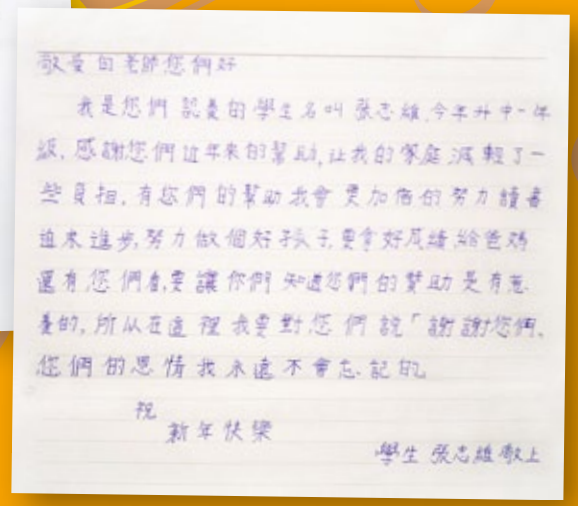 敬愛的老師您們好
我是您們認養的學生名叫張志雄,今年升中一年
級,感謝您們近年來的幫助,让我的家庭減輕了一
些負担,有您們的幫助我會更加倍的努力讀書
追求進步,努力做個好孩子,要拿好成績給爸媽
還有您們看,要讓你們知道您們的贊助是有意
義的,所以在這裡我要對您們說「謝謝您們,
您們的恩情我永遠不會忘記的」
祝
新年快樂
學生 張志雄敬上